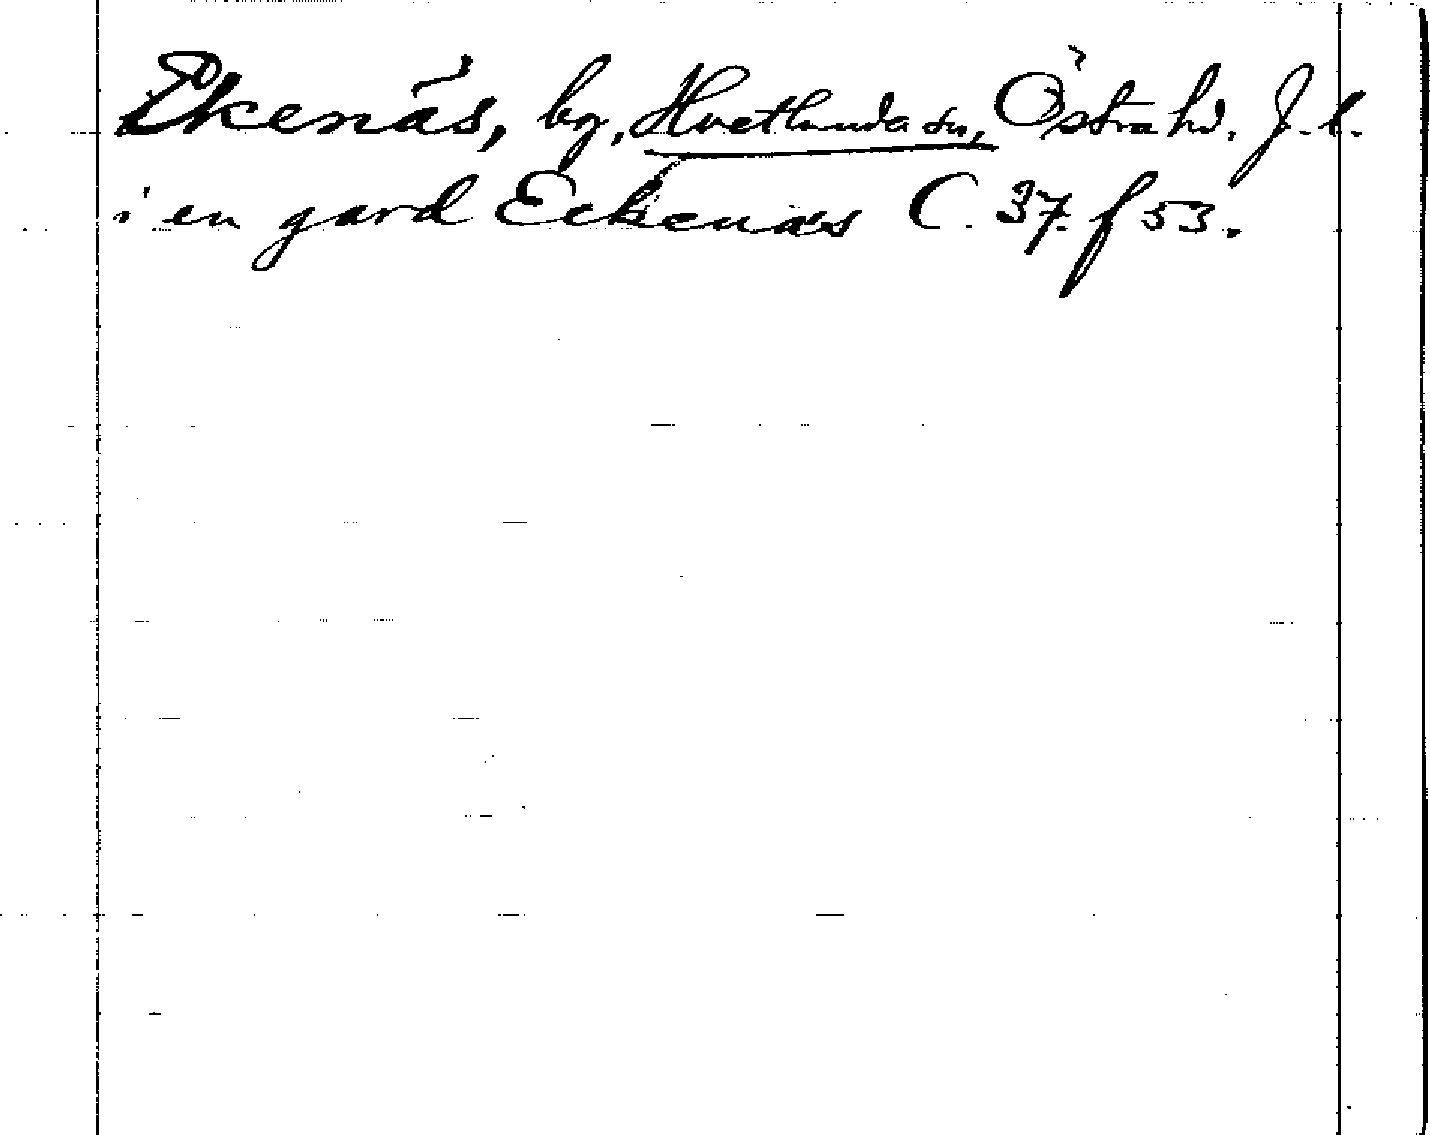 Ekenäs, by, Hvetlanda sn, Östra hd. J. l.
i en gard Eckenäs C. 37. f 53.